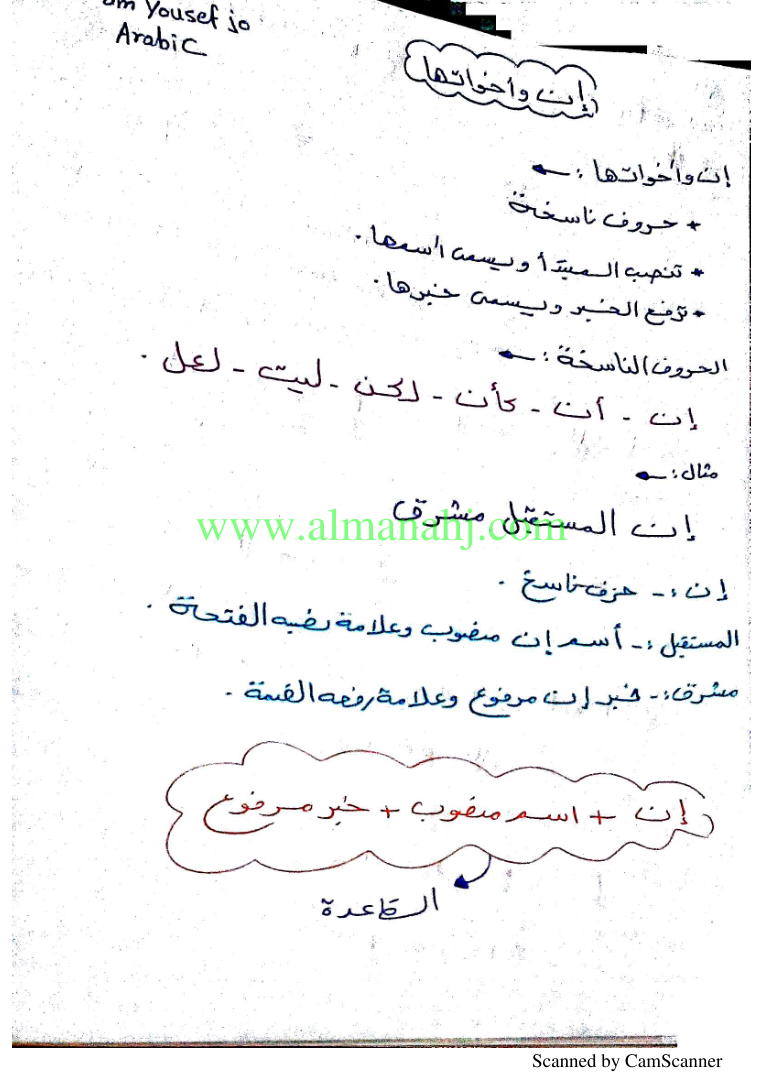 um Yousef jo
Arabic
إن وأخواتها
إن وأخواتها :←
* حروف ناسخة
* تنصب المبتدأ ويسمى اسمها .
* ترفع الخبر ويسمى خبرها .
الحروف الناسخة :←
إن - أن - كأن - لكن - ليت - لعل .
مثال :←
إن المستقبل مشرق
www.almanahj.com
إن :- حرف ناسخ .
المستقبل :- أسم إن منصوب وعلامة نصبه الفتحة .
مشرق :- خبر إن مرفوع وعلامة رفعه الضمة .
إن + اسم منصوب + خبر مرفوع
القاعدة
Scanned by CamScanner